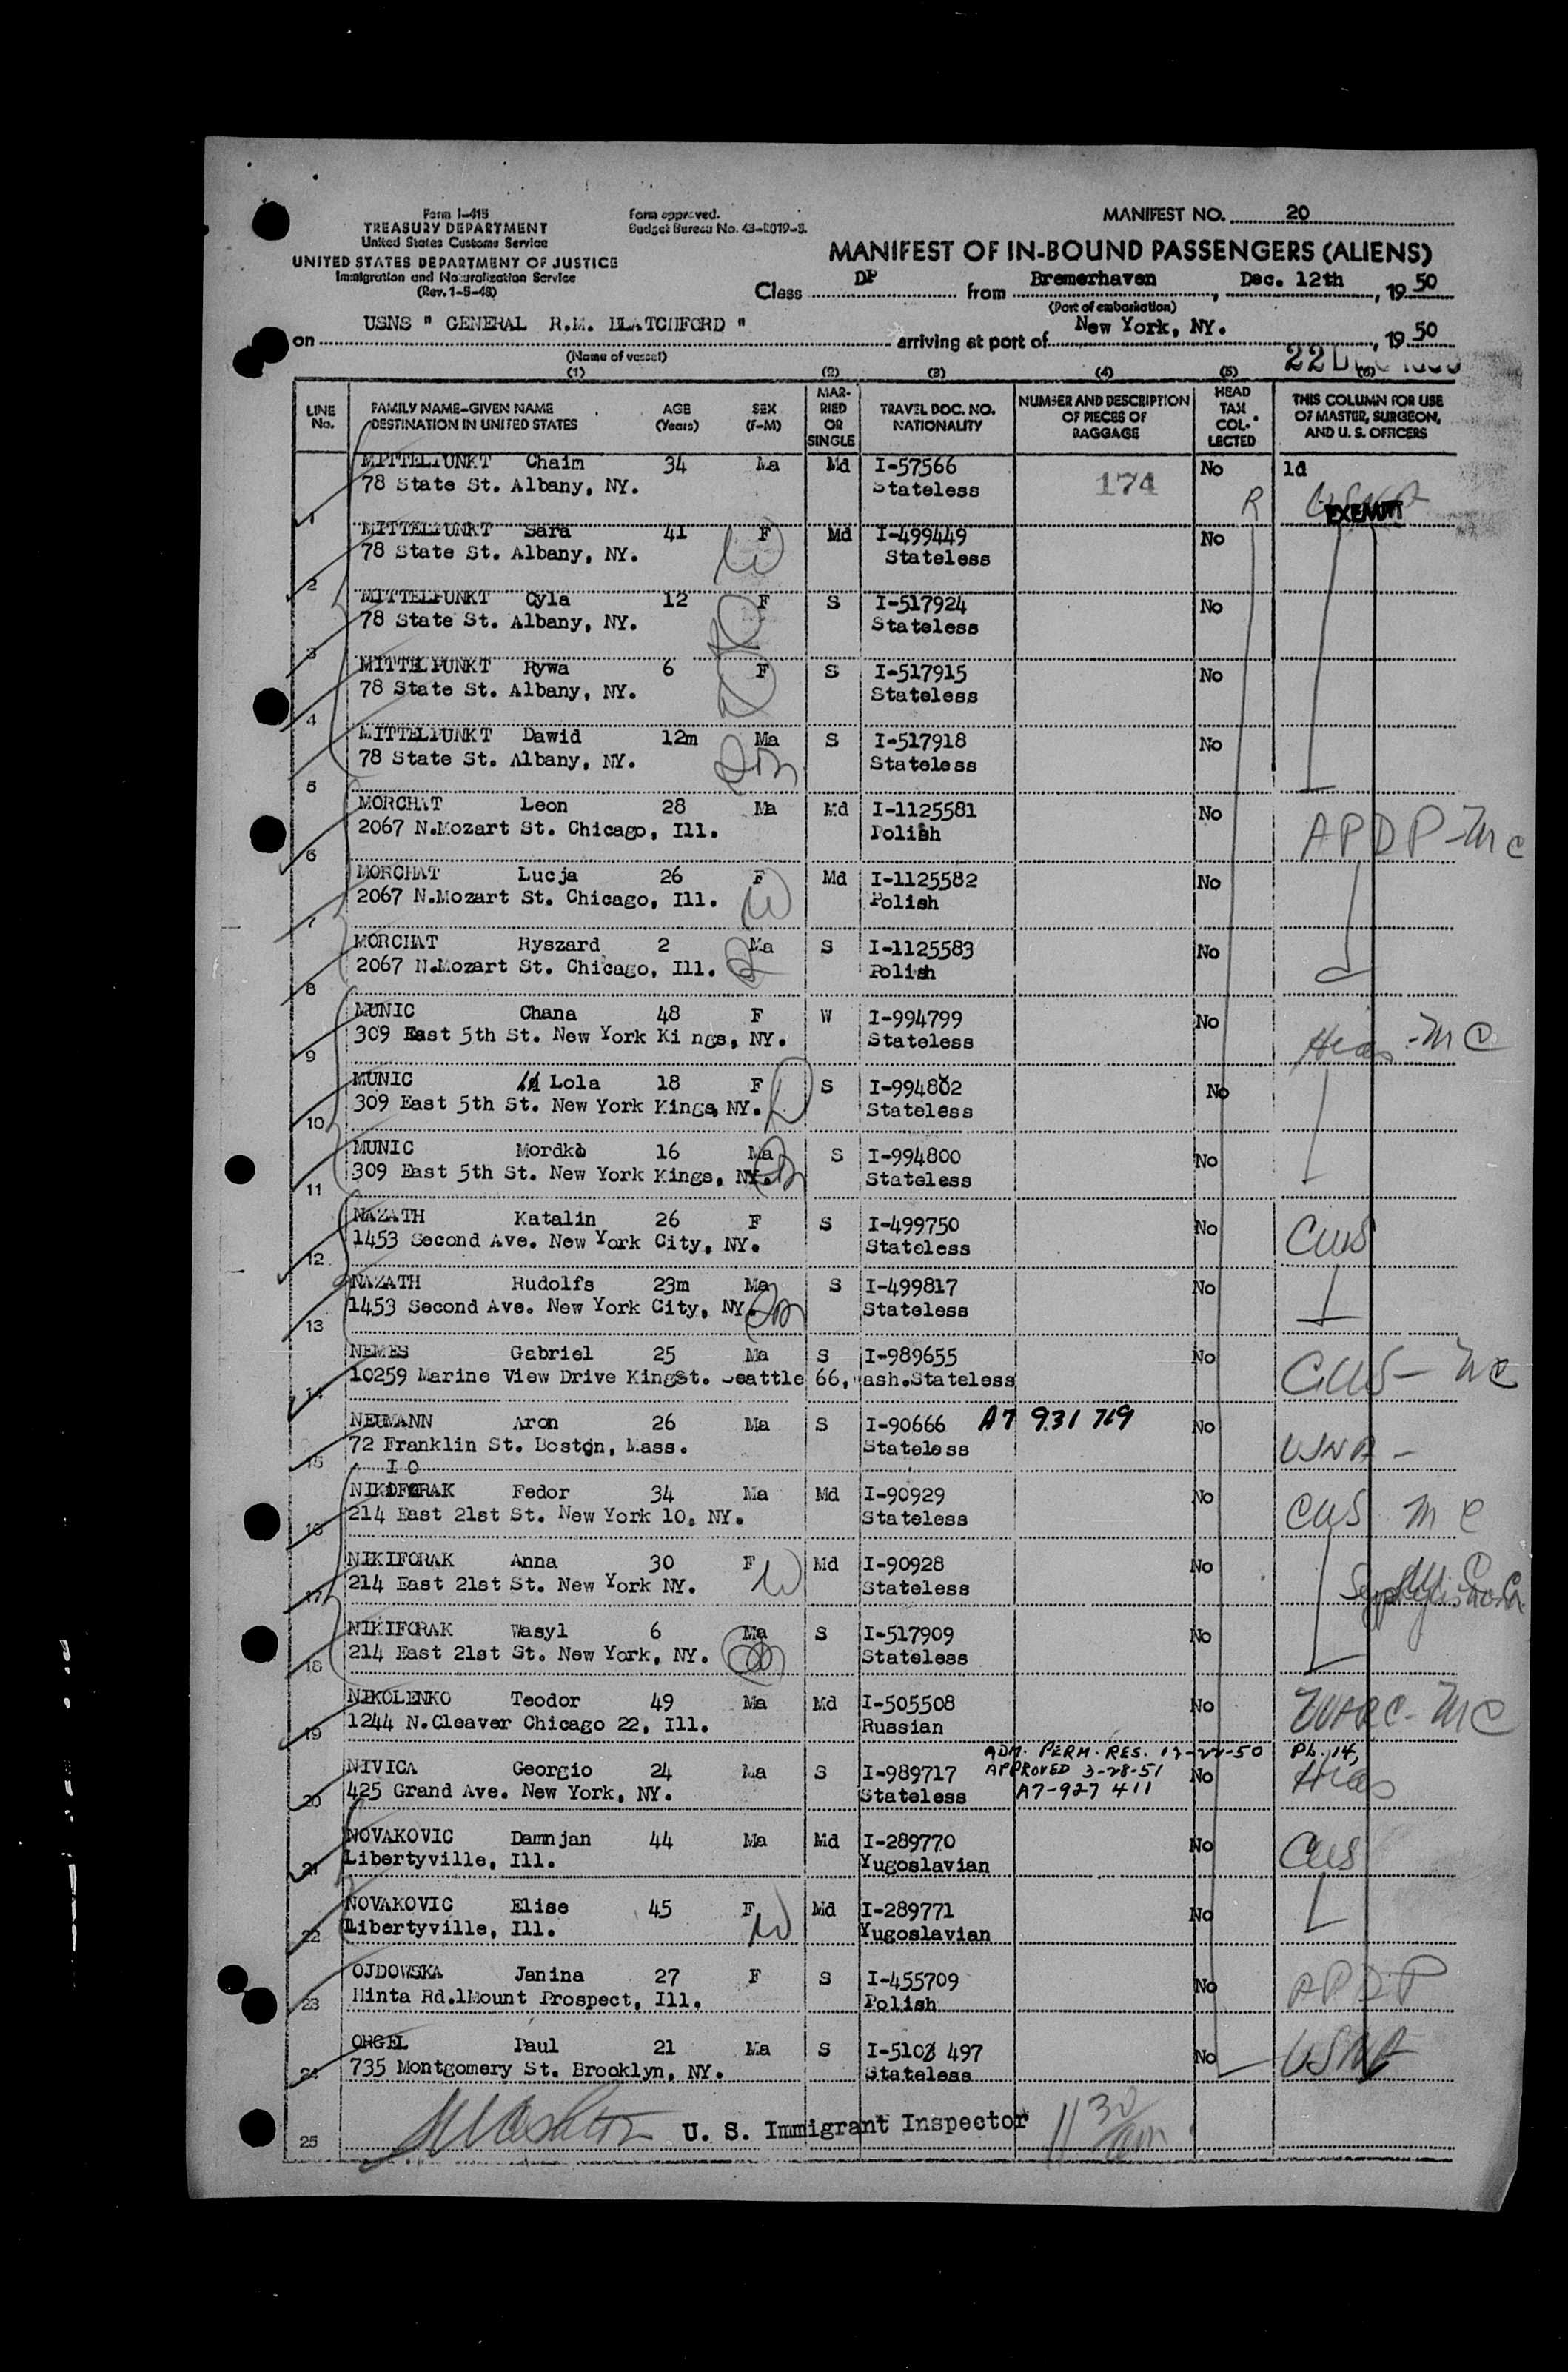 Form I-415
TREASURY DEPARTMENT
United States Customs Service
UNITED STATES DEPARTMENT OF JUSTICE
Immigration and Naturalization Service
(Rev. 1-5-48)
Form approved.
Budget Bureau No. 43-R019-3.
MANIFEST NO. 20
MANIFEST OF IN-BOUND PASSENGERS (ALIENS)
Class DP from Bremerhaven, Dec. 12th, 1950
(Port of embarkation)
on USNS " GENERAL R.M. BLATCHFORD " arriving at port of New York, NY., 1950
(Name of vessel)
22 DEC
(1) (2) (3) (4) (5) (6)
LINE No. FAMILY NAME-GIVEN NAME DESTINATION IN UNITED STATES AGE (Years) SEX (F-M) MARRIED OR SINGLE TRAVEL DOC. NO. NATIONALITY NUMBER AND DESCRIPTION OF PIECES OF BAGGAGE HEAD TAX COLLECTED THIS COLUMN FOR USE OF MASTER, SURGEON, AND U. S. OFFICERS
MITTELPUNKT Chaim 34 Ma Md I-57566 174 No 1d
1 78 State St. Albany, NY. Stateless R USNA EXEMPT
MITTELPUNKT Sara 41 F Md I-499449 No
2 78 State St. Albany, NY. W Stateless
MITTELPUNKT Cyla 12 F S I-517924 No
3 78 State St. Albany, NY. D Stateless
MITTELPUNKT Rywa 6 F S I-517915 No
4 78 State St. Albany, NY. D Stateless
MITTELPUNKT Dawid 12m Ma S I-517918 No
5 78 State St. Albany, NY. Son Stateless
MORCHAT Leon 28 Ma Md I-1125581 No
6 2067 N.Mozart St. Chicago, Ill. Polish APDP-MC
MORCHAT Lucja 26 F Md I-1125582 No
7 2067 N.Mozart St. Chicago, Ill. W Polish
MORCHAT Ryszard 2 Ma S I-1125583 No
8 2067 N.Mozart St. Chicago, Ill. Polish
MUNIC Chana 48 F W I-994799 No
9 309 East 5th St. New York Ki ngs, NY. Stateless Hias -MC
MUNIC Lola 18 F S I-994802 No
10 309 East 5th St. New York Kings, NY. D Stateless
MUNIC Mordko 16 Ma S I-994800 No
11 309 East 5th St. New York Kings, NY. Son Stateless
NAZATH Katalin 26 F S I-499750 No
12 1453 Second Ave. New York City, NY. Stateless CWS
NAZATH Rudolfs 23m Ma S I-499817 No
13 1453 Second Ave. New York City, NY. Son Stateless
NEMES Gabriel 25 Ma S I-989655 No
14 10259 Marine View Drive KingSt. Seattle 66, ash.Stateless CWS - MC
NEUMANN Aron 26 Ma S I-90666 A7 931 719 No
15 72 Franklin St. Boston, Mass. Stateless USNA -
I O
NIKIFORAK Fedor 34 Ma Md I-90929 No
16 214 East 21st St. New York 10, NY. Stateless CWS MC
NIKIFORAK Anna 30 F Md I-90928 No
17 214 East 21st St. New York NY. W Stateless
NIKIFORAK Wasyl 6 Ma S I-517909 No
18 214 East 21st St. New York, NY. Son Stateless
NIKOLENKO Teodor 49 Ma Md I-505508 No
19 1244 N.Cleaver Chicago 22, Ill. Russian MC
ADM. PERM. RES. 12-22-50 PL. 14,
NIVICA Georgio 24 Ma S I-989717 APPROVED 3-28-51 No Hias
20 425 Grand Ave. New York, NY. Stateless A7-927 411
NOVAKOVIC Damnjan 44 Ma Md I-289770 No
21 Libertyville, Ill. Yugoslavian CWS
NOVAKOVIC Elise 45 F Md I-289771 No
22 Libertyville, Ill. W Yugoslavian
OJDOWSKA Janina 27 F S I-455709 No
23 Hinta Rd.1Mount Prospect, Ill. Polish APDP
ORGEL Paul 21 Ma S I-5103 497 No
24 735 Montgomery St. Brooklyn, NY. Stateless USNA
25 U. S. Immigrant Inspector 11 30 am